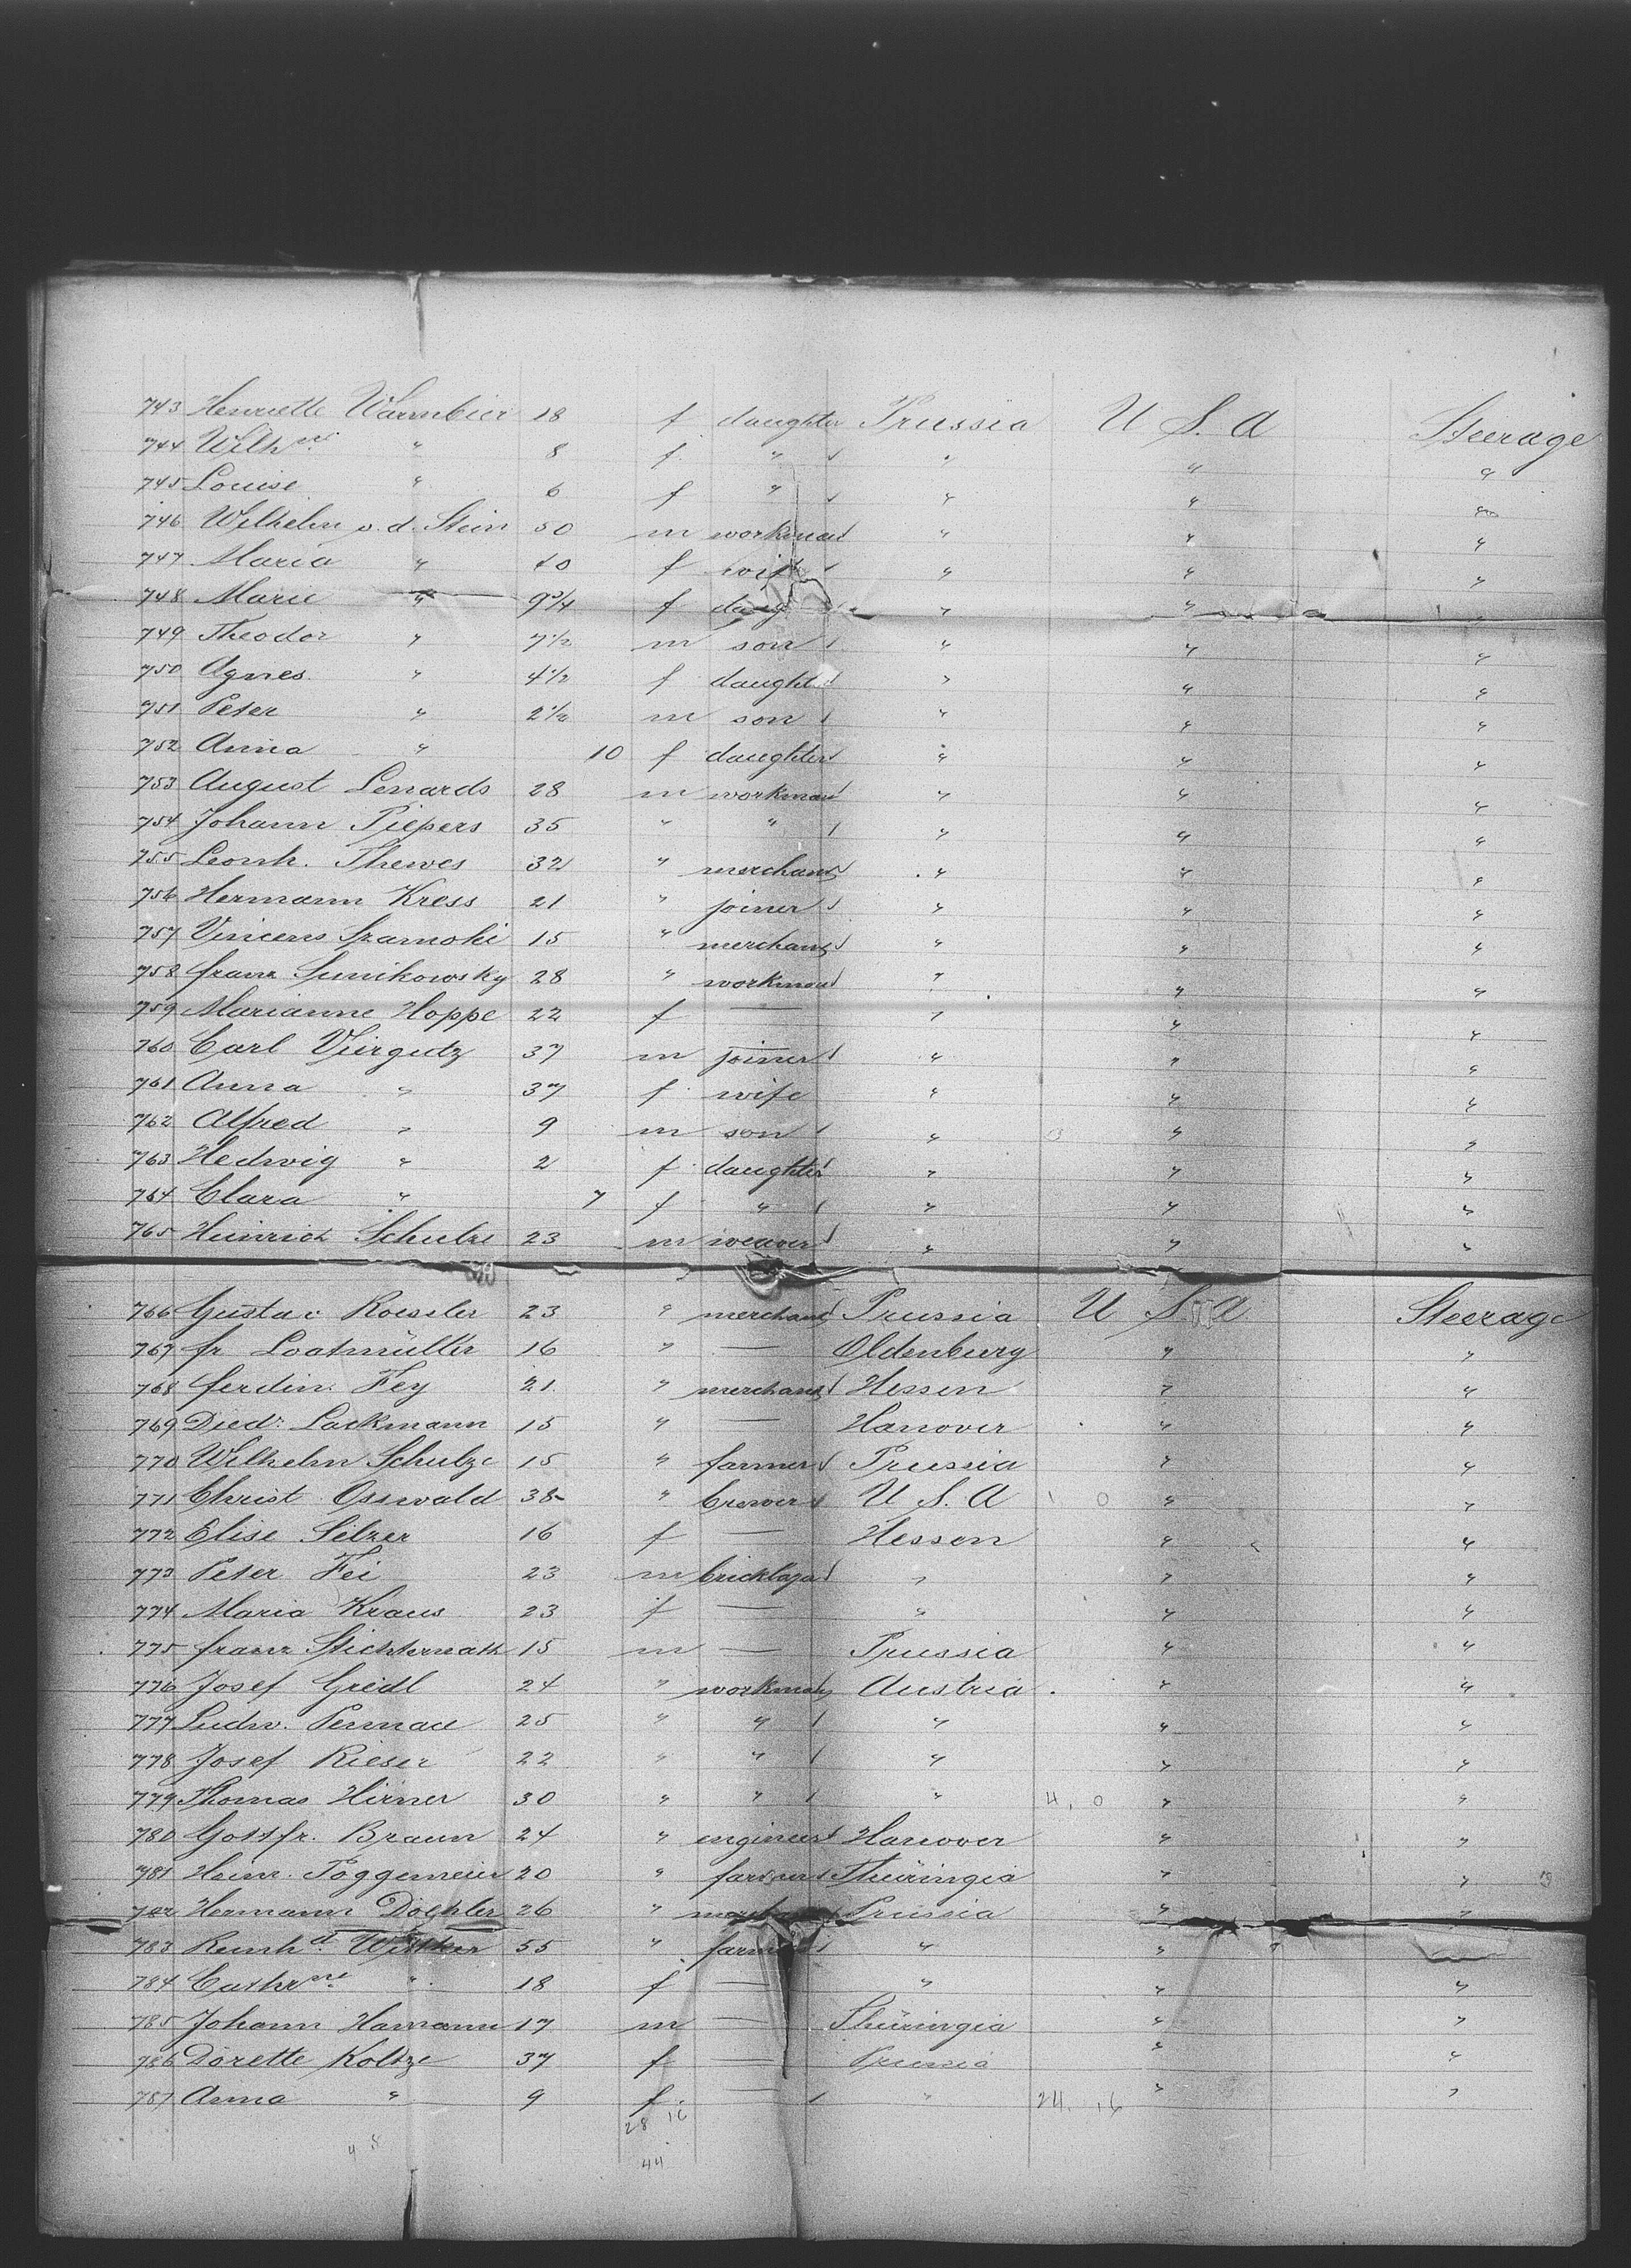 743 Henriette Warmbier 18 f daughter Prussia U S. A Steerage
744 Wilh ne " 8 f " " " "
745 Louise " 6 f " " " "
746 Wilhelm v. d. Stein 50 m workman " " "
747 Maria " 40 f wife " " "
748 Marie " 9 3/4 f daug " " "
749 Theodor " 7 1/2 m son " " "
750 Agnes " 4 1/2 f daughter " " "
751 Peter " 2 1/2 m son " " "
752 Anna " 10 f daughter " " "
753 August Lenards 28 m workman " " "
754 Johann Piepers 35 " " " " "
755 Leonh. Thewes 32 " merchant " " "
756 Hermann Kress 21 " joiner " " "
757 Vincens 15 " merchant " " "
758 franz 28 " workman " " "
759 Marianne Hoppe 22 f — " " "
760 Carl Viergutz 37 m joiner " " "
761 Anna " 37 f wife " " "
762 Alfred " 9 m son " " "
763 Hedwig " 2 f daughter " " "
764 Clara " 7 f " " " "
765 Heinrich Schulze 23 m weaver " " "
766 Gustav Roessler 23 " merchant Prussia U S. A Steerage
767 fr. Lootmüller 16 " — Oldenburg " "
768 ferdin. Fey 21 " merchant Hessen " "
769 Died. Lackmann 15 " — Hanover " "
770 Wilhelm Schulze 15 " farmer Prussia " "
771 Christ Osswald 38 " brewer U S. A 1 0 " "
772 Elise Silzer 16 f — Hesson " "
773 Peter Fei 23 m bricklayer " " "
774 Maria Kraus 23 f — " " "
775 franz Stichternath 15 m — Prussia " "
776 Josef Greidl 24 " workman Austria " "
777 Ludw. Permau 25 " " " " "
778 Josef Rieser 22 " " " " "
779 Thomas Hirner 30 " " " 4, 0 " "
780 Gottfr. Braun 24 " engineer Hanover " "
781 Heinr. Poggemeier 20 " farmer Thüringia " "
782 Hermann Döehler 26 " Prussia " "
783 Reinh d. 55 " farmer " "
784 Cathr ne " 18 f — " " "
785 Johann Hamann 17 m — Thüringia " "
786 Dorette Koltze 37 f — Prussia " "
787 Anna " 9 f. — " 24. 16 " "
28 16
4 8
44